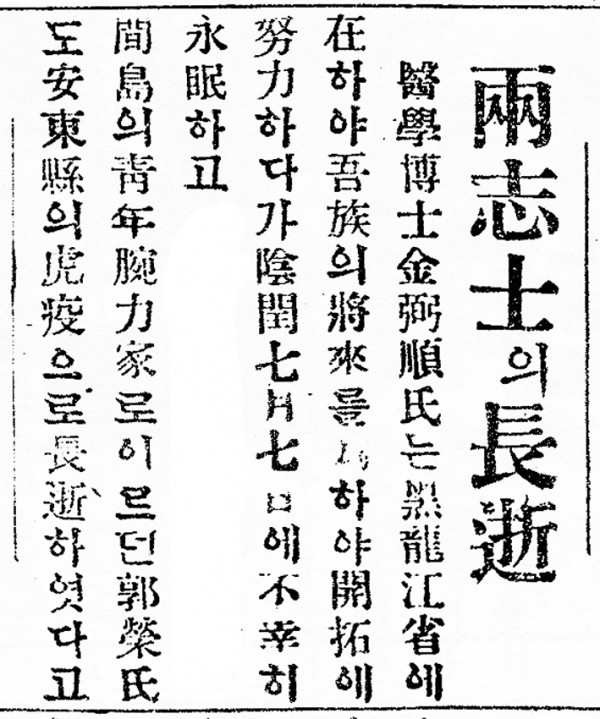 兩志士의長逝
醫學博士金弼順氏는黑龍江省에
在하야吾族의將來를爲하야開拓에
努力하다가陰閏七月七日에不幸히
永眠하고
間島의靑年腕力家로이르던郭榮氏
도安東縣의虎疫으로長逝하엿다고